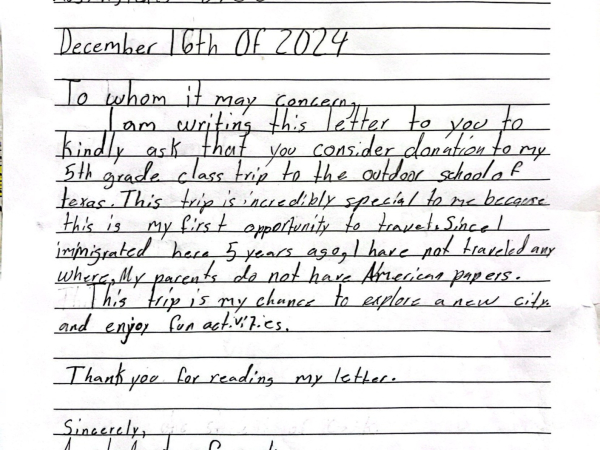 December 16th Of 2024
To whom it may concern,
I am writing this letter to you to
kindly ask that you consider donation to my
5th grade class trip to the outdoor school of
texas. This trip is incredibly special to me because
this is my first opportunity to travel. Since I
immigrated here 5 years ago, I have not traveled any
where. My parents do not have American papers.
This trip is my chance to explore a new city
and enjoy fun activities.
Thank you for reading my letter.
Sincerely,